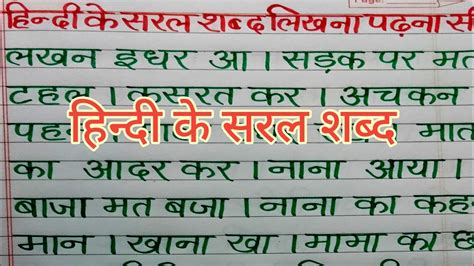 हिन्दी के सरल शब्द लिखना पढ़ना सी
लखन इधर आ । सड़क पर मत
टहल । कसरत कर । अचकन
हिन्दी के सरल शब्द
पहन मात
का आदर कर । नाना आया ।
बाजा मत बजा । नाना का कह
मान । खाना खा । मामा का